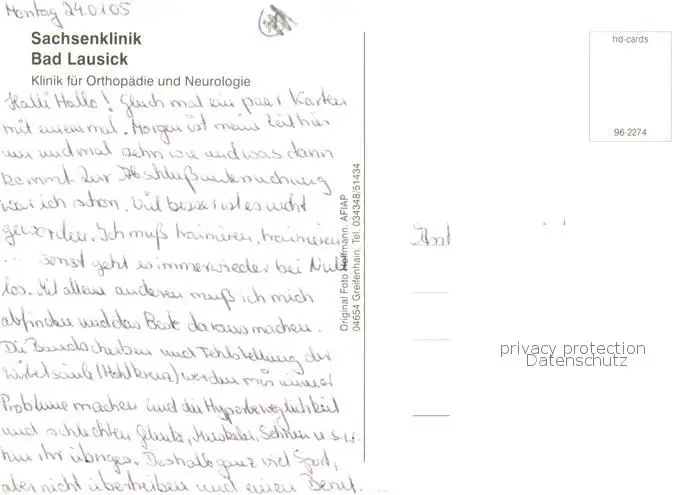 Montag 24.01.05
Sachsenklinik
Bad Lausick
Klinik für Orthopädie und Neurologie
Halli Hallo! Gleich mal ein paar Karten
mit einem mal. Morgen ist meine Zeit hier
um und mal sehn wie und was dann
kommt. Zur Abschlußuntersuchung
war ich schon. Viel besser ist es nicht
geworden. Ich muß trainieren, trainieren
... sonst geht es immer wieder bei Null
los. Mit allem anderen muß ich mich
abfinden und das Beste daraus machen.
Die Bandscheiben und Fehlstellung der
Wirbelsäule (Hohlkreuz) werden mir immer
Probleme machen und die Hyperbeweglichkeit
und schlechten Gelenke, Muskeln, Sehnen u.s.w.
tun ihr übriges. Deshalb ganz viel Sport,
aber nicht übertreiben und einen Beruf....
Original Foto Hoffmann, AFIAP
04654 Greifenhain, Tel. 034348/51434
hd-cards
96-2274
privacy protection
Datenschutz